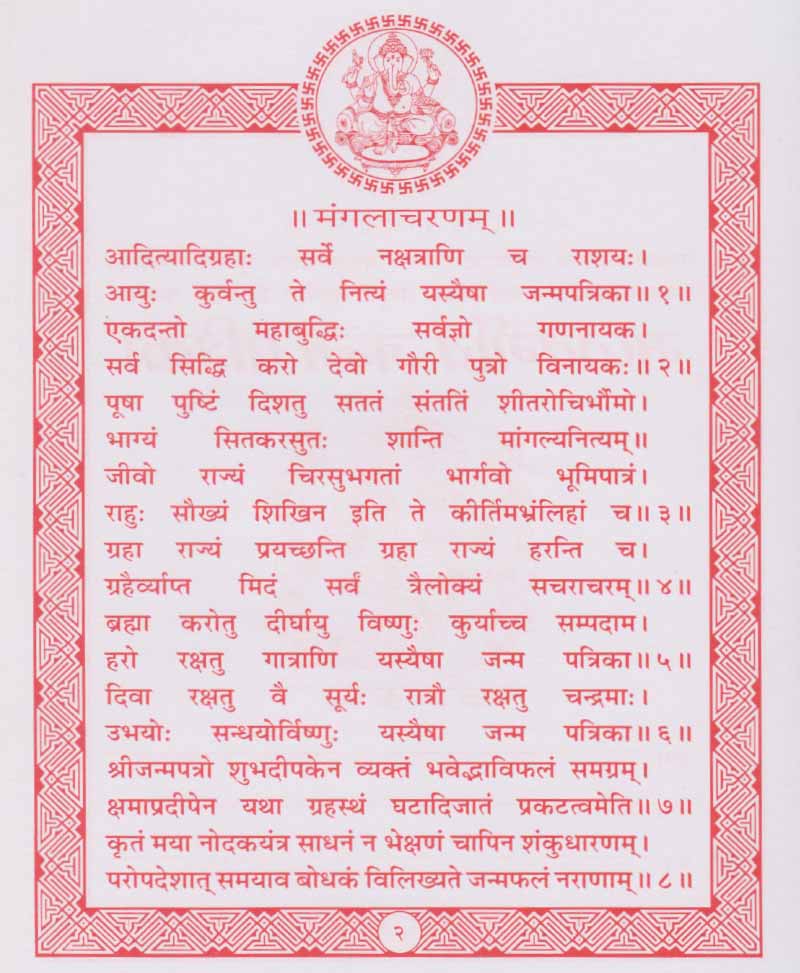 ॥ मंगलाचरणम् ॥
आदित्यादिग्रहाः सर्वे नक्षत्राणि च राशयः।
आयुः कुर्वन्तु ते नित्यं यस्यैषा जन्मपत्रिका॥ १ ॥
एकदन्तो महाबुद्धिः सर्वज्ञो गणनायक।
सर्व सिद्धि करो देवो गौरी पुत्रो विनायकः॥ २ ॥
पूषा पुष्टिं दिशतु सततं संततिं शीतरोचिर्भौमो।
भाग्यं सितकरसुतः शान्ति मांगल्यनित्यम्॥
जीवो राज्यं चिरसुभगतां भार्गवो भूमिपात्रं।
राहुः सौख्यं शिखिन इति ते कीर्तिमभ्रंलिहां च॥ ३ ॥
ग्रहा राज्यं प्रयच्छन्ति ग्रहा राज्यं हरन्ति च।
ग्रहैर्व्याप्त मिदं सर्वं त्रैलोक्यं सचराचरम्॥ ४ ॥
ब्रह्मा करोतु दीर्घायु विष्णुः कुर्याच्च सम्पदाम।
हरो रक्षतु गात्राणि यस्यैषा जन्म पत्रिका॥ ५ ॥
दिवा रक्षतु वै सूर्यः रात्रौ रक्षतु चन्द्रमाः।
उभयोः सन्धयोर्विष्णुः यस्यैषा जन्म पत्रिका॥ ६ ॥
श्रीजन्मपत्रो शुभदीपकेन व्यक्तं भवेद्भाविफलं समग्रम्।
क्षमाप्रदीपेन यथा ग्रहस्थं घटादिजातं प्रकटत्वमेति॥ ७ ॥
कृतं मया नोदकयंत्र साधनं न भेक्षणं चापिन शंकुधारणम्।
परोपदेशात् समयाव बोधकं विलिख्यते जन्मफलं नराणाम्॥ ८ ॥
२